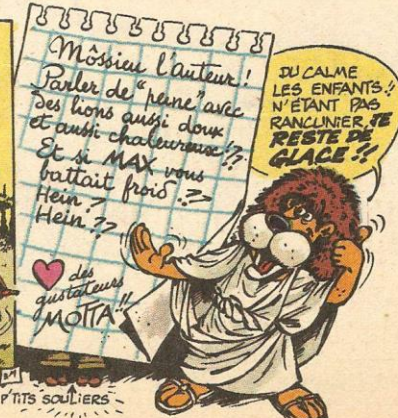 Môssieu l'auteur !
Parler de "peine" avec
des lions aussi doux
et aussi chaleureux !?
Et si MAX vous
battait froid .?>
Hein ?
Hein ??
des
gustateurs
MOTTA !!
DU CALME
LES ENFANTS !!
N'ÉTANT PAS
RANCUNIER, JE
RESTE DE
GLACE !!
P'TITS SOULIERS